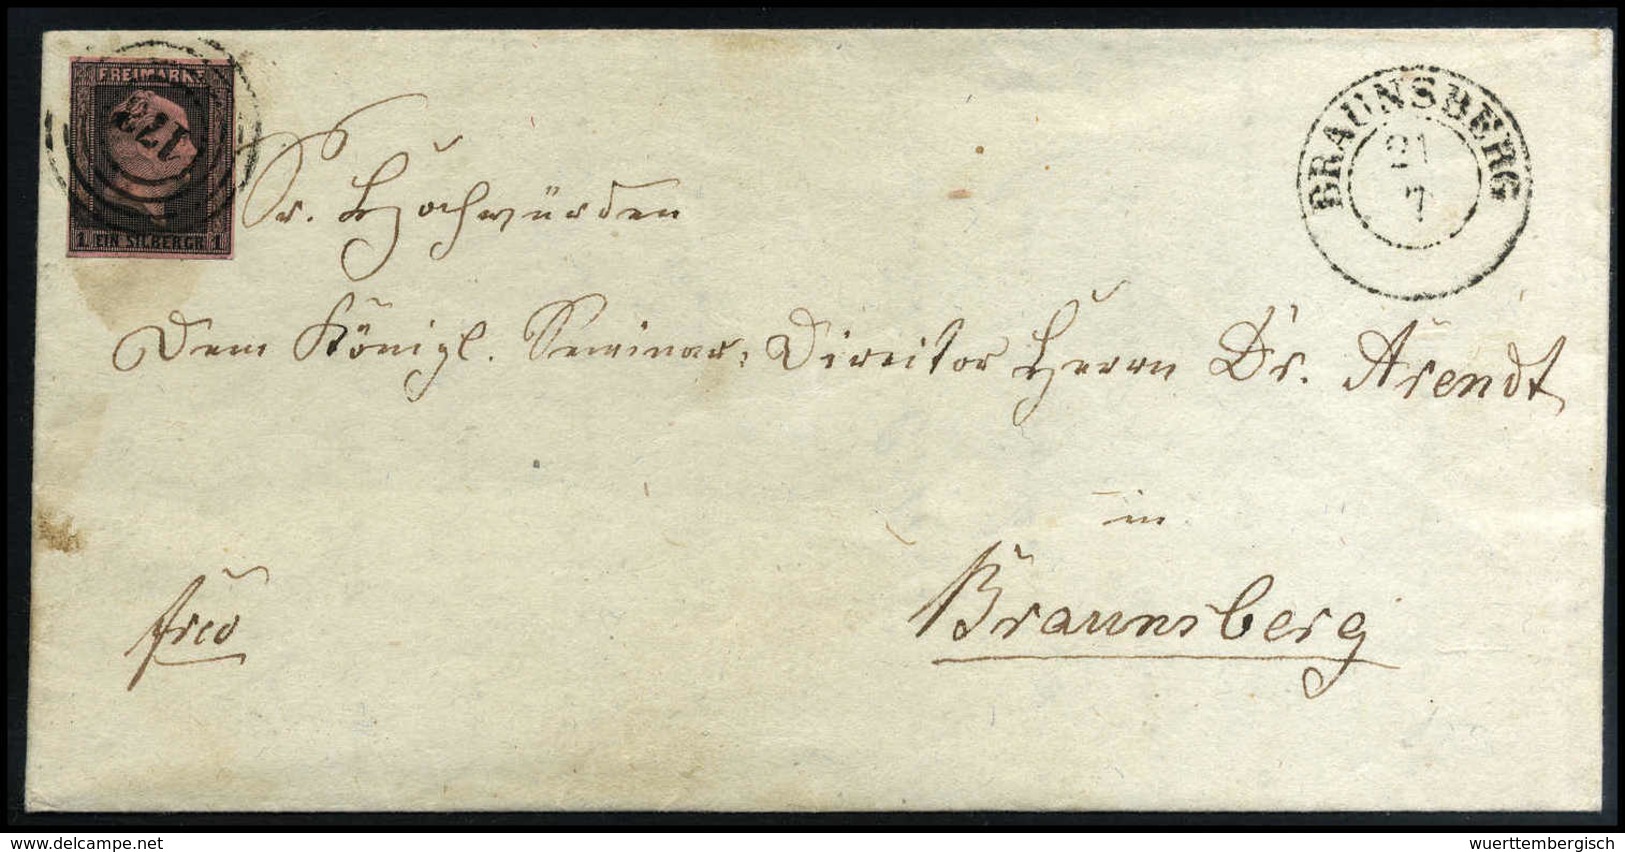 FREIMARKE
178
1 EIN SILBERGR. 1
BRAUNSBERG
21
7
Sr. Hochwürden
Dem Königl. Seminar-Director Herrn Dr. Arendt
in
Braunsberg
frco
delcampe.net
wuerttembergisch